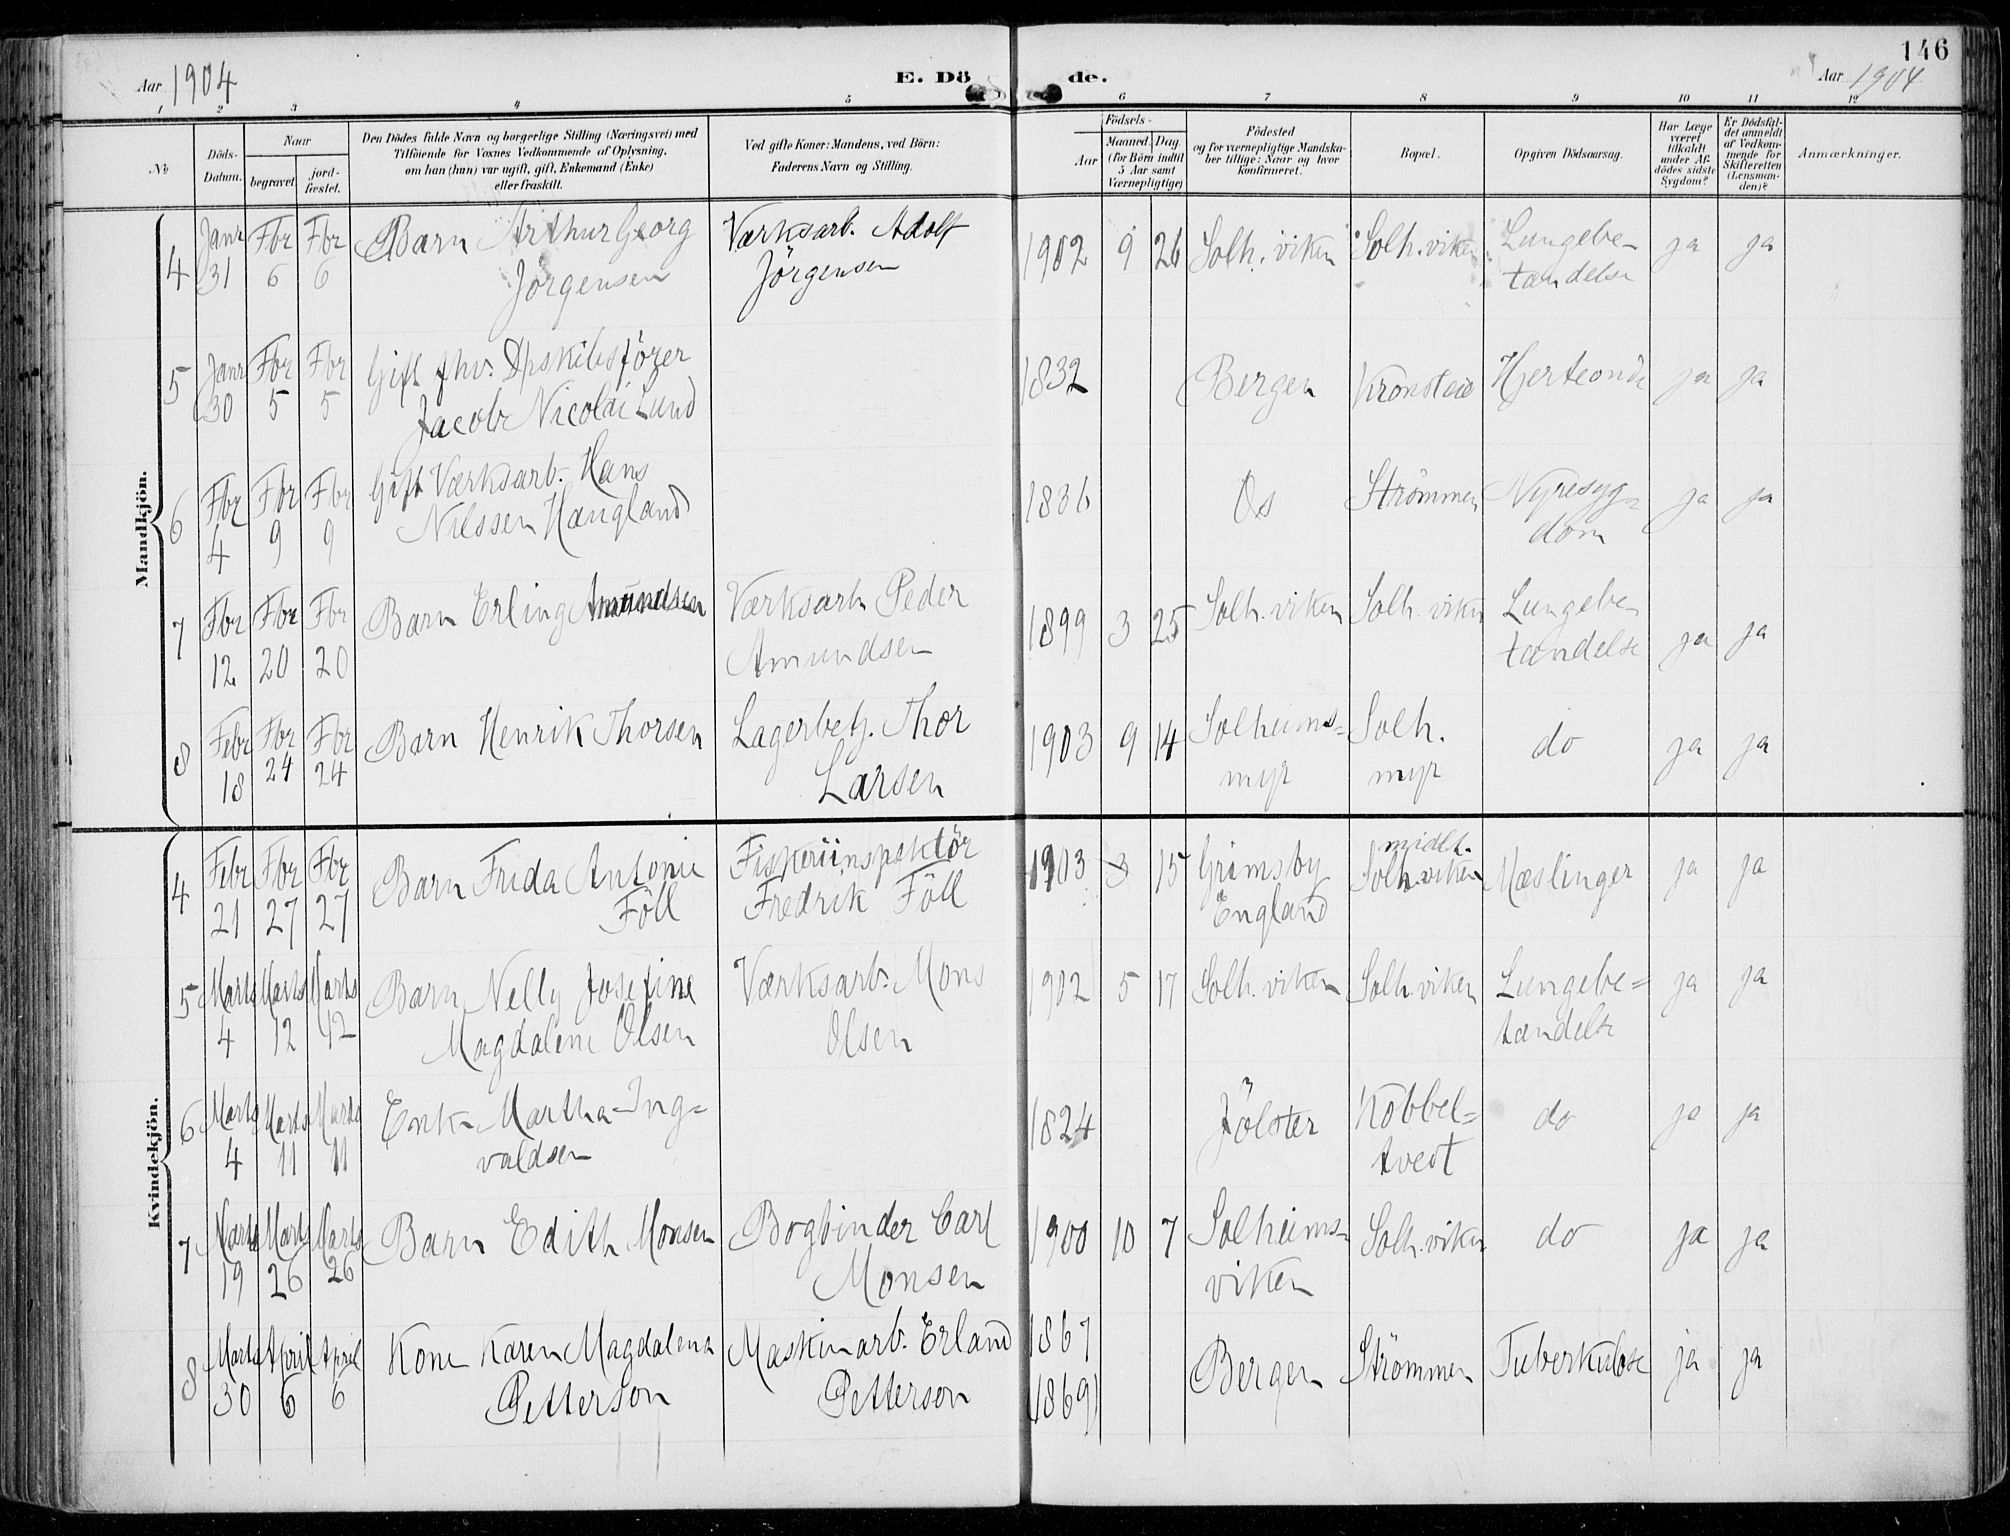 146
Aar 1904
E. Dö
de.
Aar 1904
1 2 3 4 5 6 7 8 9 10 11 12
No
Döds-
Datum.
Naar
begravet.
jord-
fæstet.
Den Dödes fulde Navn og borgerlige Stilling (Næringsvei) med
Tilföiende for Voxnes Vedkommende af Oplysning,
om han (hun) var ugift, gift, Enkemand (Enke)
eller fraskilt.
Ved gifte Koner: Mandens, ved Börn:
Faderens Navn og Stilling.
Födsels-
Aar
Maaned.
Dag.
(for Börn indtil
5 Aar samt
Værnepligtige)
Födested
og for værnepligtige Mandska-
ber tillige: Naar og hvor
konfirmeret.
Bopæl.
Opgiven Dödsaarsag.
Har Læge
været
tilkaldt
under Af-
dödes sidste
Sygdom?
Er Dödsfal-
det anmeldt
af Vedkom-
mende for
Skifteretten
(Lensman-
den)?
Anmærkninger.
Mandkjön.
4 Janr Fbr Fbr Barn Arthur Georg Værksarb. Adolf 1902 9 26 Solh. viken Solh. viken Lungebe- ja ja
31 6 6 Jörgensen Jörgensen tændelse
5 Janr Fbr Fbr Gift fhv. Dpskibsförer 1832 Bergen Kronstad Hjerteonde ja ja
30 5 5 Jacob Nicolai Lund
6 Fbr Fbr Fbr Gift Værksarb. Hans 1836 Os Strömmen Nyresyg- ja ja
4 9 9 Nilssen Haugland dom
7 Fbr Fbr Fbr Barn Erling Amundsen Værksarb Peder 1899 3 25 Solh. viken Solh. viken Lungebe- ja ja
12 20 20 Amundsen tændelse
8 Febr Fbr Fbr Barn Henrik Thorsen Lagerbetj. Thor 1903 9 14 Solheims- Solh. do ja ja
18 24 24 Larsen myr myr
Kvindekjön.
4 Febr Fbr Fbr Barn Frida Antonie Fiskeriinspektör 1903 3 15 Grimsby midlt. Solh. viken Mæslinger ja ja
21 27 27 Föll Fredrik Föll England
5 Marts Marts Marts Barn Nelly Josefine Værksarb. Mons 1902 5 17 Solh. viken Solh. viken Lungebe- ja ja
4 12 12 Magdalene Olsen Olsen tændelse
6 Marts Marts Marts Enke Martha Ing- 1824 Jölster Kobbel- do ja ja
4 11 11 valdsen tvedt
7 Marts Marts Marts Barn Edith Monsen Bogbinder Carl 1900 10 7 Solheims- Solh. viken do ja ja
19 26 26 Monsen viken
8 Marts April April Kone Karen Magdalena Maskinarb. Erland 1867 Bergen Strömmen Tuberkulose ja ja
30 6 6 Petterson Petterson (1869)